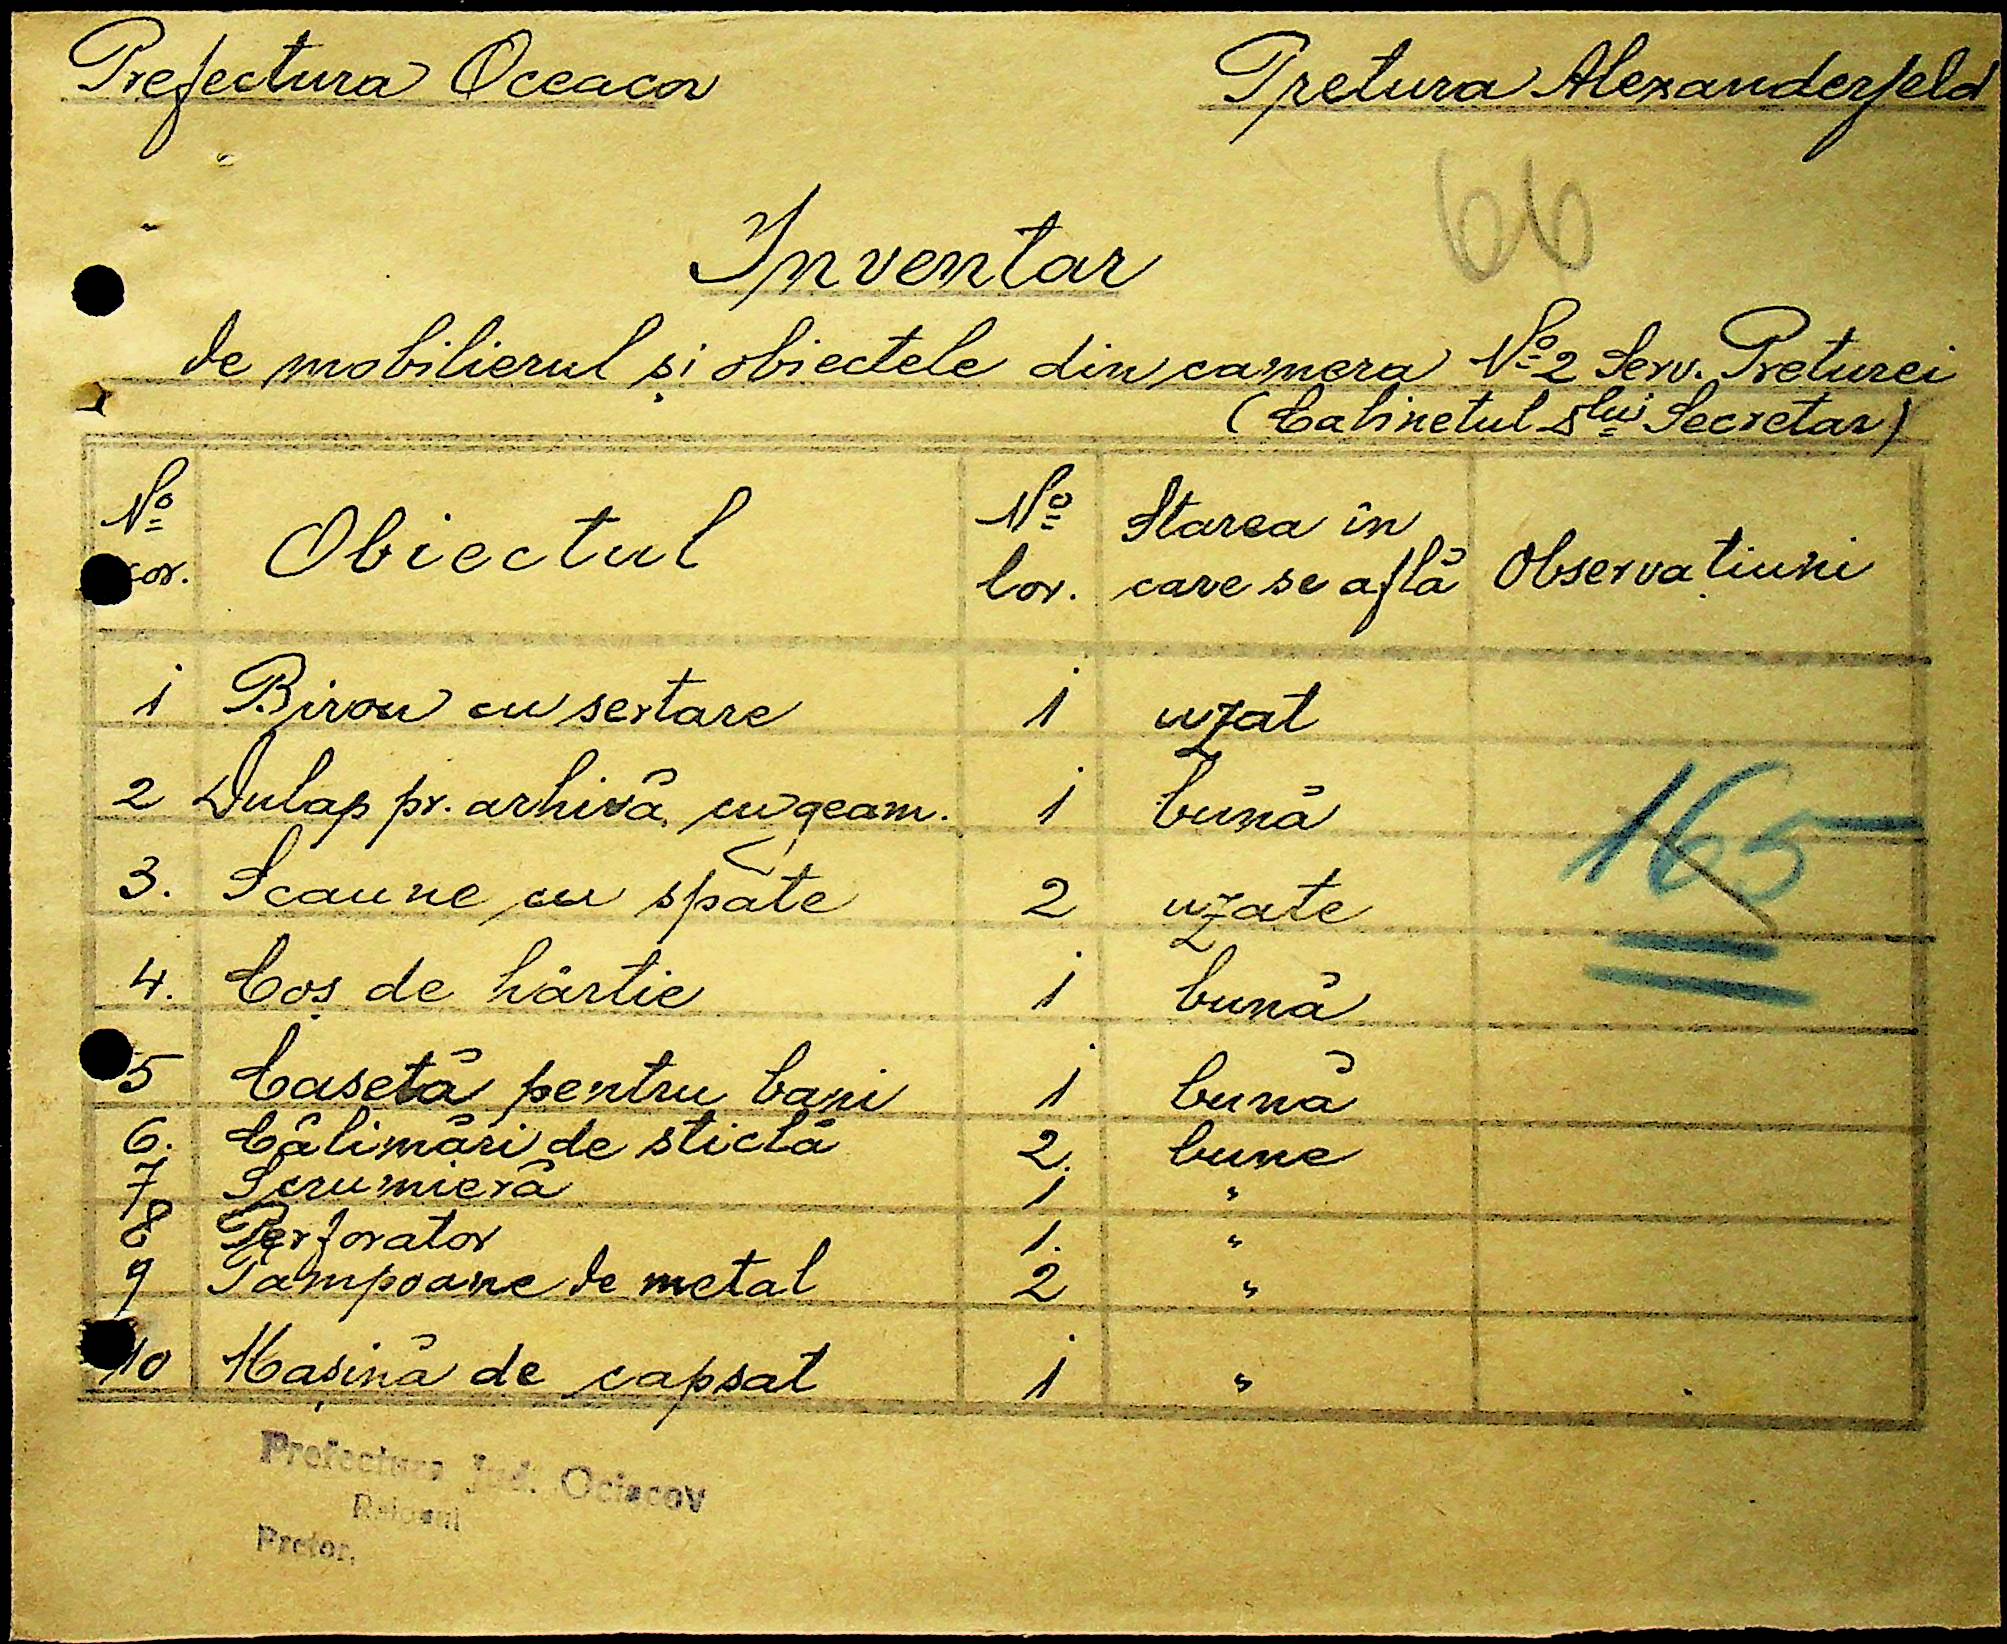 Prefectura Oceacov Pretura Alexanderfeld
66
Inventar
de mobilierul și obiectele din camera No 2 Serv. Preturei
(Cabinetul Slui Secretar)
No cor. Obiectul No lor. Starea în care se află Observațiuni
1 Birou cu sertare 1 uzat
2 Dulap pr. arhivă cu geam. 1 bună
165
3. Scaune cu spate 2 uzate
4. Coș de hârtie 1 bună
5 Casetă pentru bani 1 bună
6. Călimări de sticlă 2. bune
7 Scrumieră 1 "
8 Perforator 1. "
9 Tampoane de metal 2 "
10 Mașină de capsat 1 "
Prefectura Jud. Ociacov
Pretor,